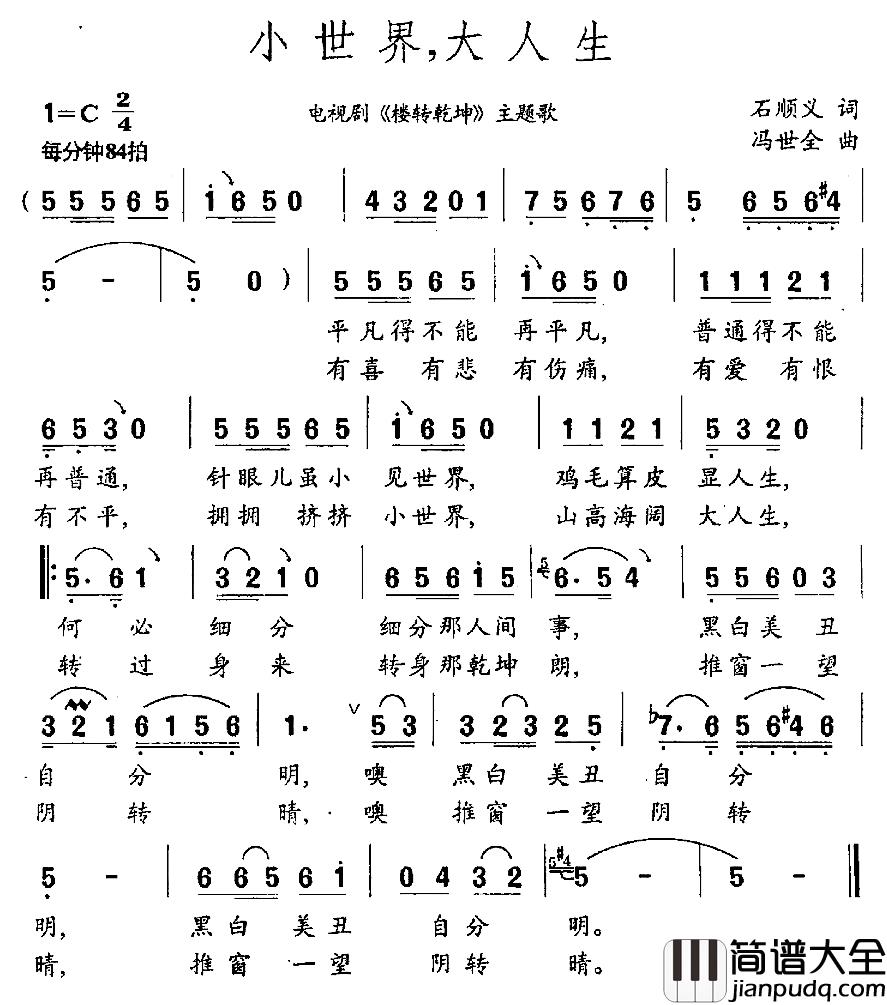 小世界,大人生
1=C 2/4
电视剧《楼转乾坤》主题歌
石顺义 词
每分钟84拍
冯世全 曲
( 5 5 5 6 5 | i 6 5 0 | 4 3 2 0 1 | 7 5 6 7 6 | 5 6 5 6 #4
5 - | 5 0 ) | 5 5 5 6 5 | i 6 5 0 | 1 1 1 2 1
平凡得不能 再平凡, 普通得不能
有喜 有悲 有伤痛, 有爱 有恨
6 5 3 0 | 5 5 5 6 5 | i 6 5 0 | 1 1 2 1 | 5 3 2 0
再普通, 针眼儿虽小 见世界, 鸡毛算皮 显人生,
有不平, 拥拥 挤挤 小世界, 山高海阔 大人生,
5· 6 1 | 3 2 1 0 | 6 5 6 i 5 | 5 6· 5 4 | 5 5 6 0 3
何必 细分 细分那人间 事, 黑白美丑
转过 身来 转身那乾坤 朗, 推窗一望
3 2 1 6 1 5 6 | 1· V 5 3 | 3 2 3 2 5 | b7· 6 5 6 #4 6
自分 明, 噢 黑白 美丑 自分
阴转 晴, 噢 推窗 一望 阴转
5 - | 6 6 5 6 i | 0 4 3 2 | 5 #4 5 - | 5 -
明, 黑白 美丑 自分 明。
晴, 推窗 一望 阴转 晴。
简谱大全
jianpudq.com